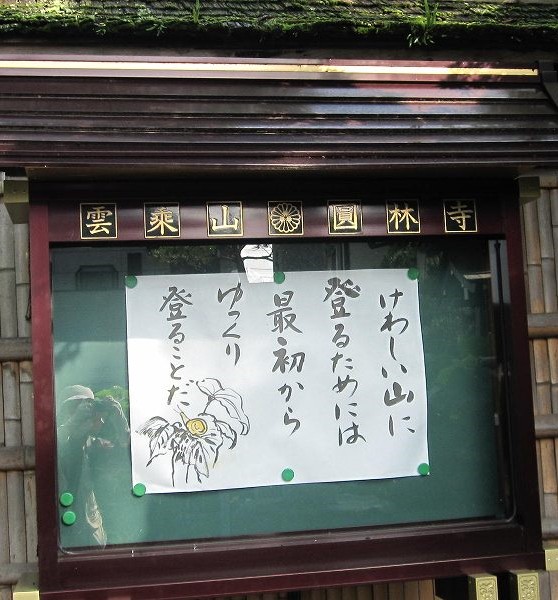 雲乘山圓林寺
けわしい山に
登るためには
最初から
ゆっくり
登ることだ